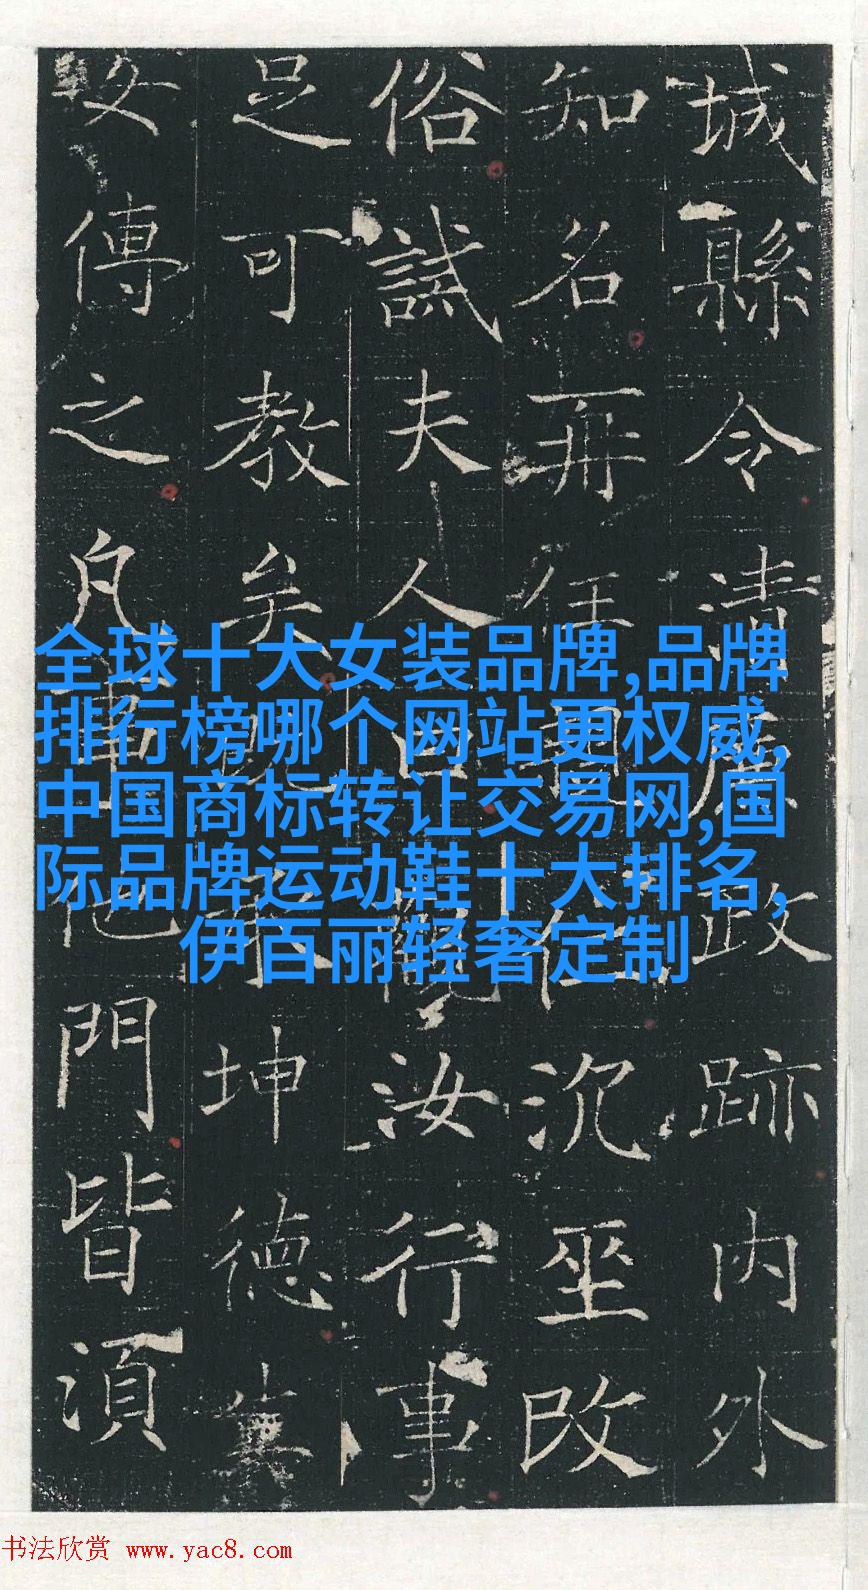 城縣令清政跡內外
知名再任沉坐改
俗試夫人曰汝行事
足可教矣坤德冀
女傳之凡事他門皆須
全球十大女装品牌,品牌
排行榜哪个网站更权威,
中国商标转让交易网,国
际品牌运动鞋十大排名,
伊百丽轻奢定制
书法欣赏 www.yac8.com